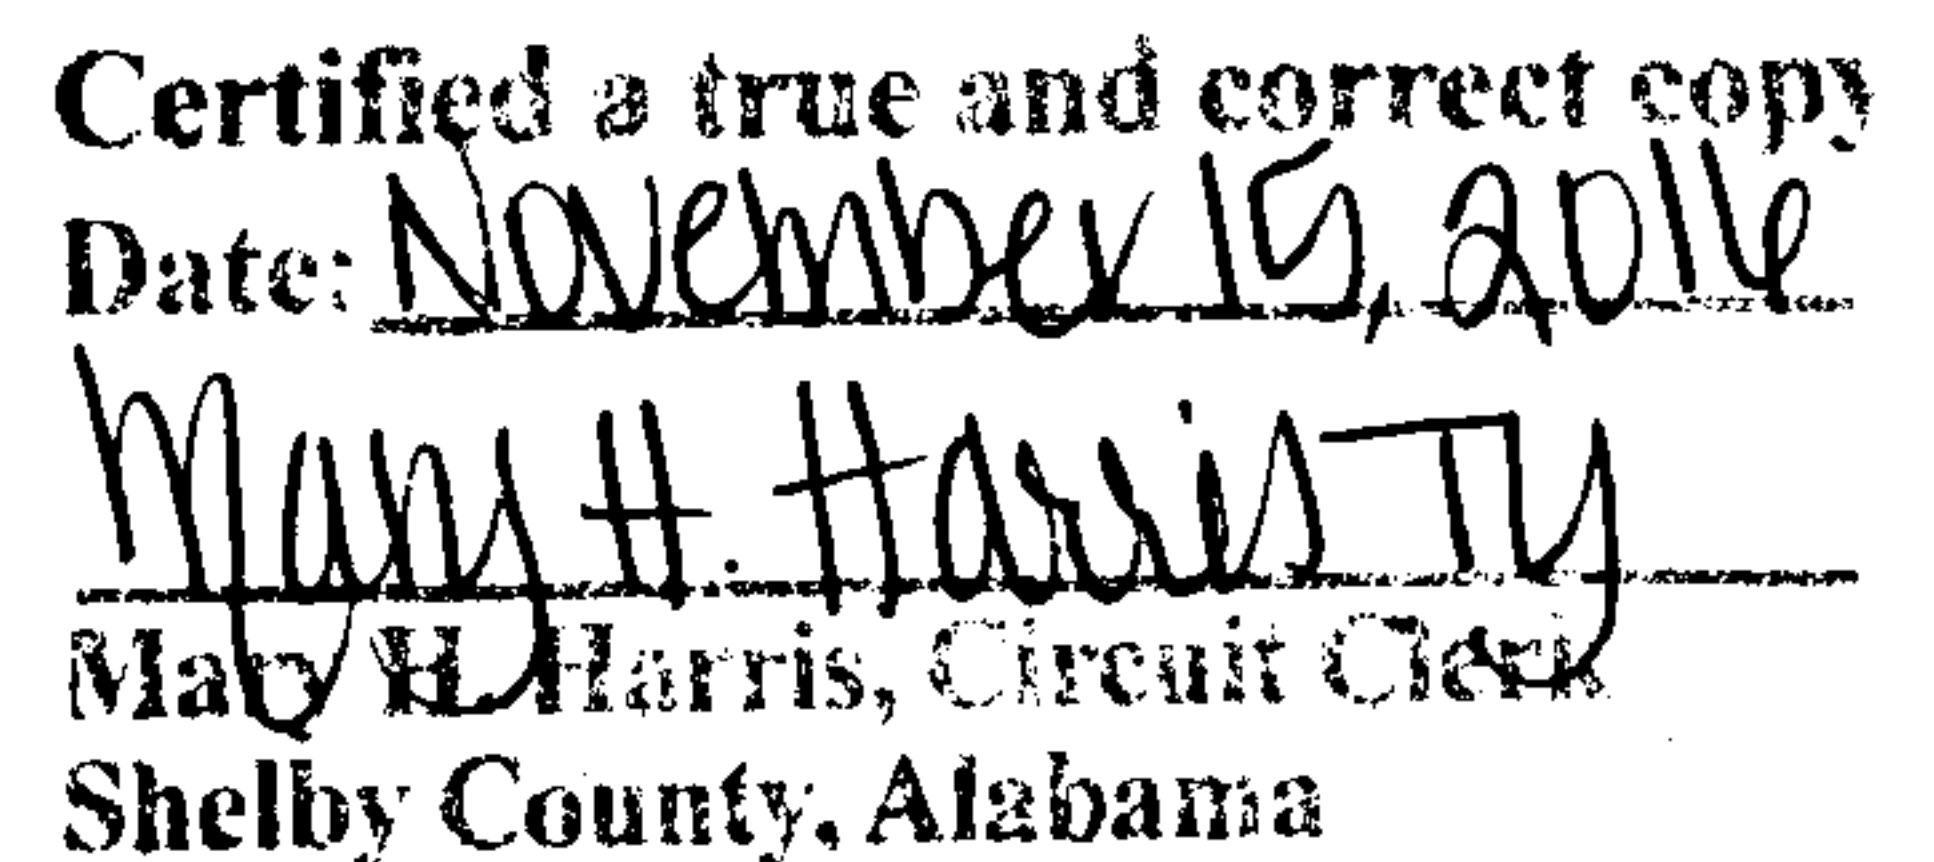 Certified a true and correct copy
Date: November 15, 2016
Mary H. Harris Ty
Mary H. Harris, Circuit Clerk
Shelby County, Alabama